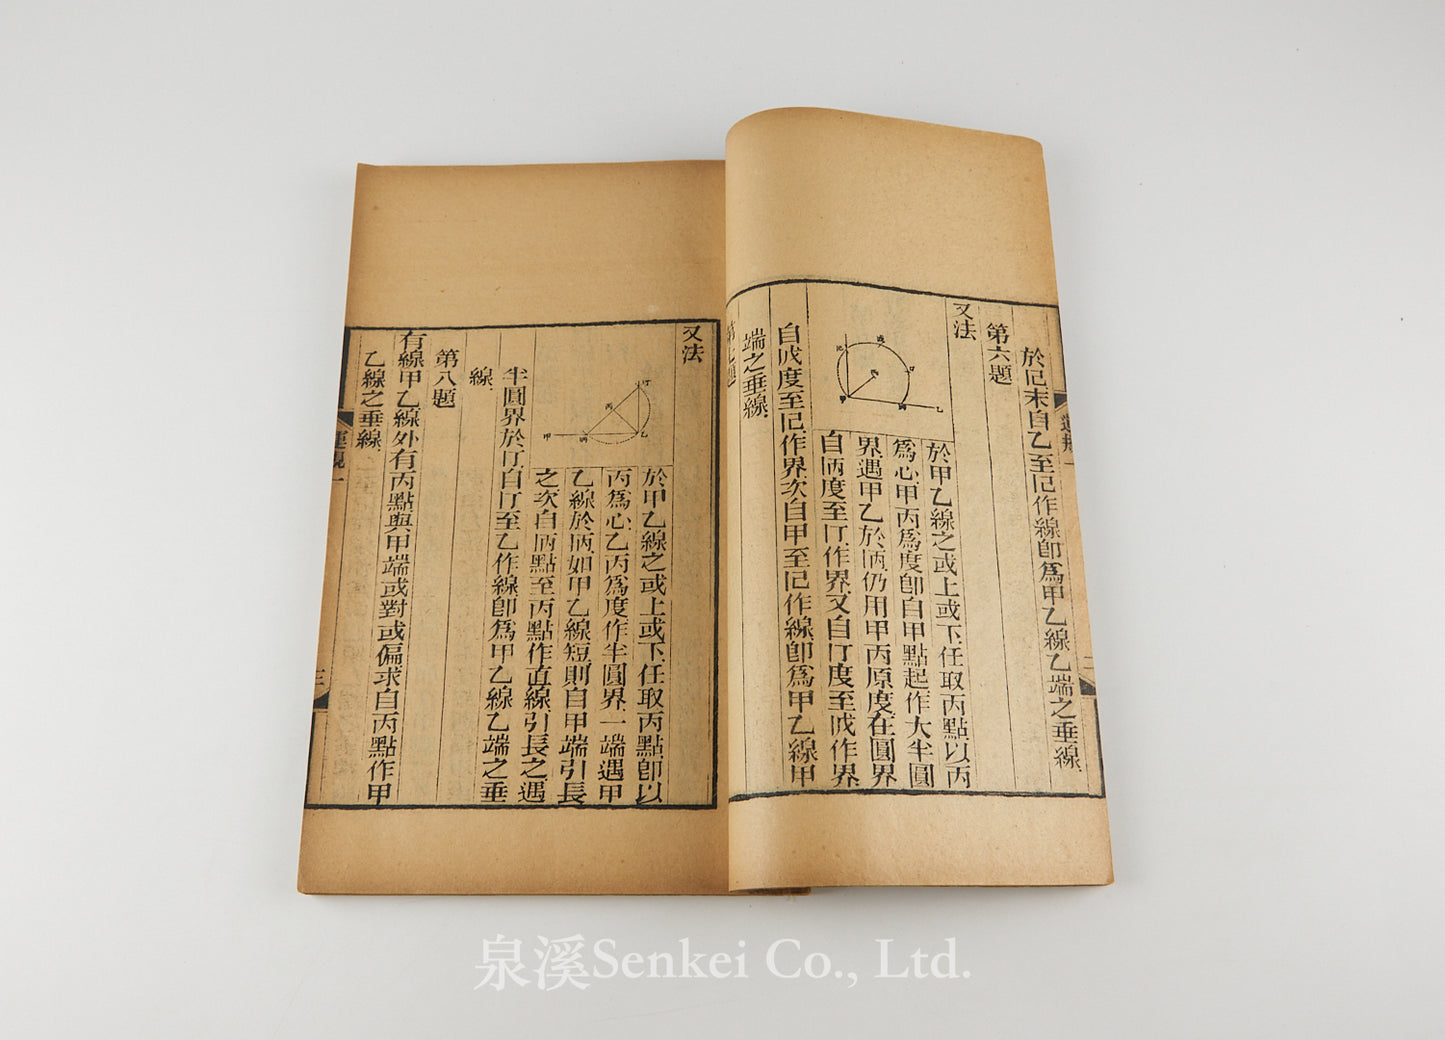 於戺末自乙至戺作線卽爲甲乙線乙端之垂線
第六題
又法
於甲乙線之或上或下任取丙點以丙
爲心甲丙爲度卽自甲點起作大半圓
界遇甲乙於㕉仍用甲丙原度在圓界
自㕉度至㕔作界又自㕔度至㕙作界
自㕙度至戺作界次自甲至戺作線卽爲甲乙線甲
端之垂線
又法
於甲乙線之或上或下任取丙點卽以
丙爲心乙丙爲度作半圓界一端遇甲
乙線於㕉如甲乙線短則自甲端引長
之次自㕉點至丙點作直線引長之遇
半圓界於㕔自㕔至乙作線卽爲甲乙線乙端之垂
線
第八題
有線甲乙線外有丙點與甲端或對或偏求自丙點作甲
乙線之垂線
甲
乙
丙
甲
乙
丙
泉溪Senkei Co., Ltd.